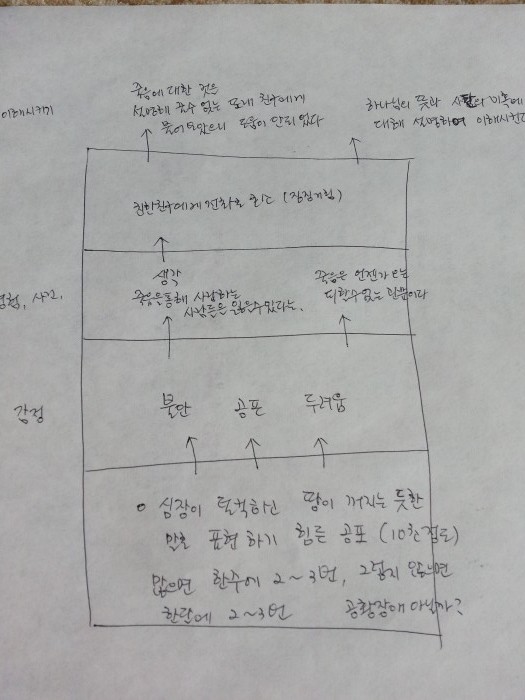 죽음에 대한 것은
설명해 줄수 없는 또래 친구에게
물어보았으니 도움이 안되었다
하나님의 뜻과 사탄의 미혹에
대해 설명하여 이해시킨다
이해시키기
친한친구에게 전화로
생각
죽음을통해 사랑하는
사람들을 잃을수있다는.
죽음은 언젠가 오는
피할수없는 관문이다
험, 사건.
감정
불안 공포 두려움
심장이 덜컥하는 땅이 꺼지는 듯한
말로 표현하기 힘든 공포 (10초정도)
많으면 한주에 2~3번, 그렇지 않으면
한달에 2~3번 공황장애 아닐까?